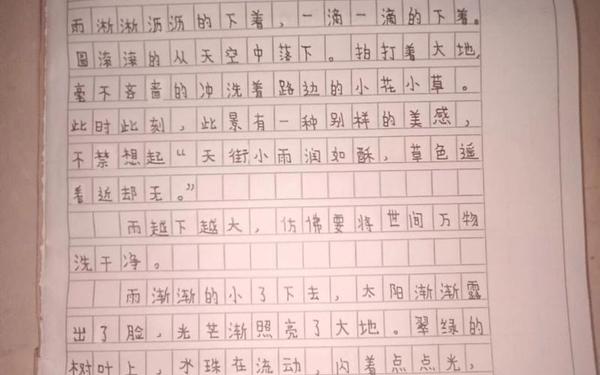 雨淅淅沥沥的下着，一滴一滴的下着。
圆滚滚的从天空中落下。拍打着大地，
毫不吝啬的冲洗着路边的小花小草。
此时此刻，此景有一种别样的美感，
不禁想起“天街小雨润如酥，草色遥
看近却无。”
雨越下越大，仿佛要将世间万物
洗干净。
雨渐渐的小了下去，太阳渐渐露
出了脸，光芒渐照亮了大地。翠绿的
树叶上，水珠在流动，闪着点点光，